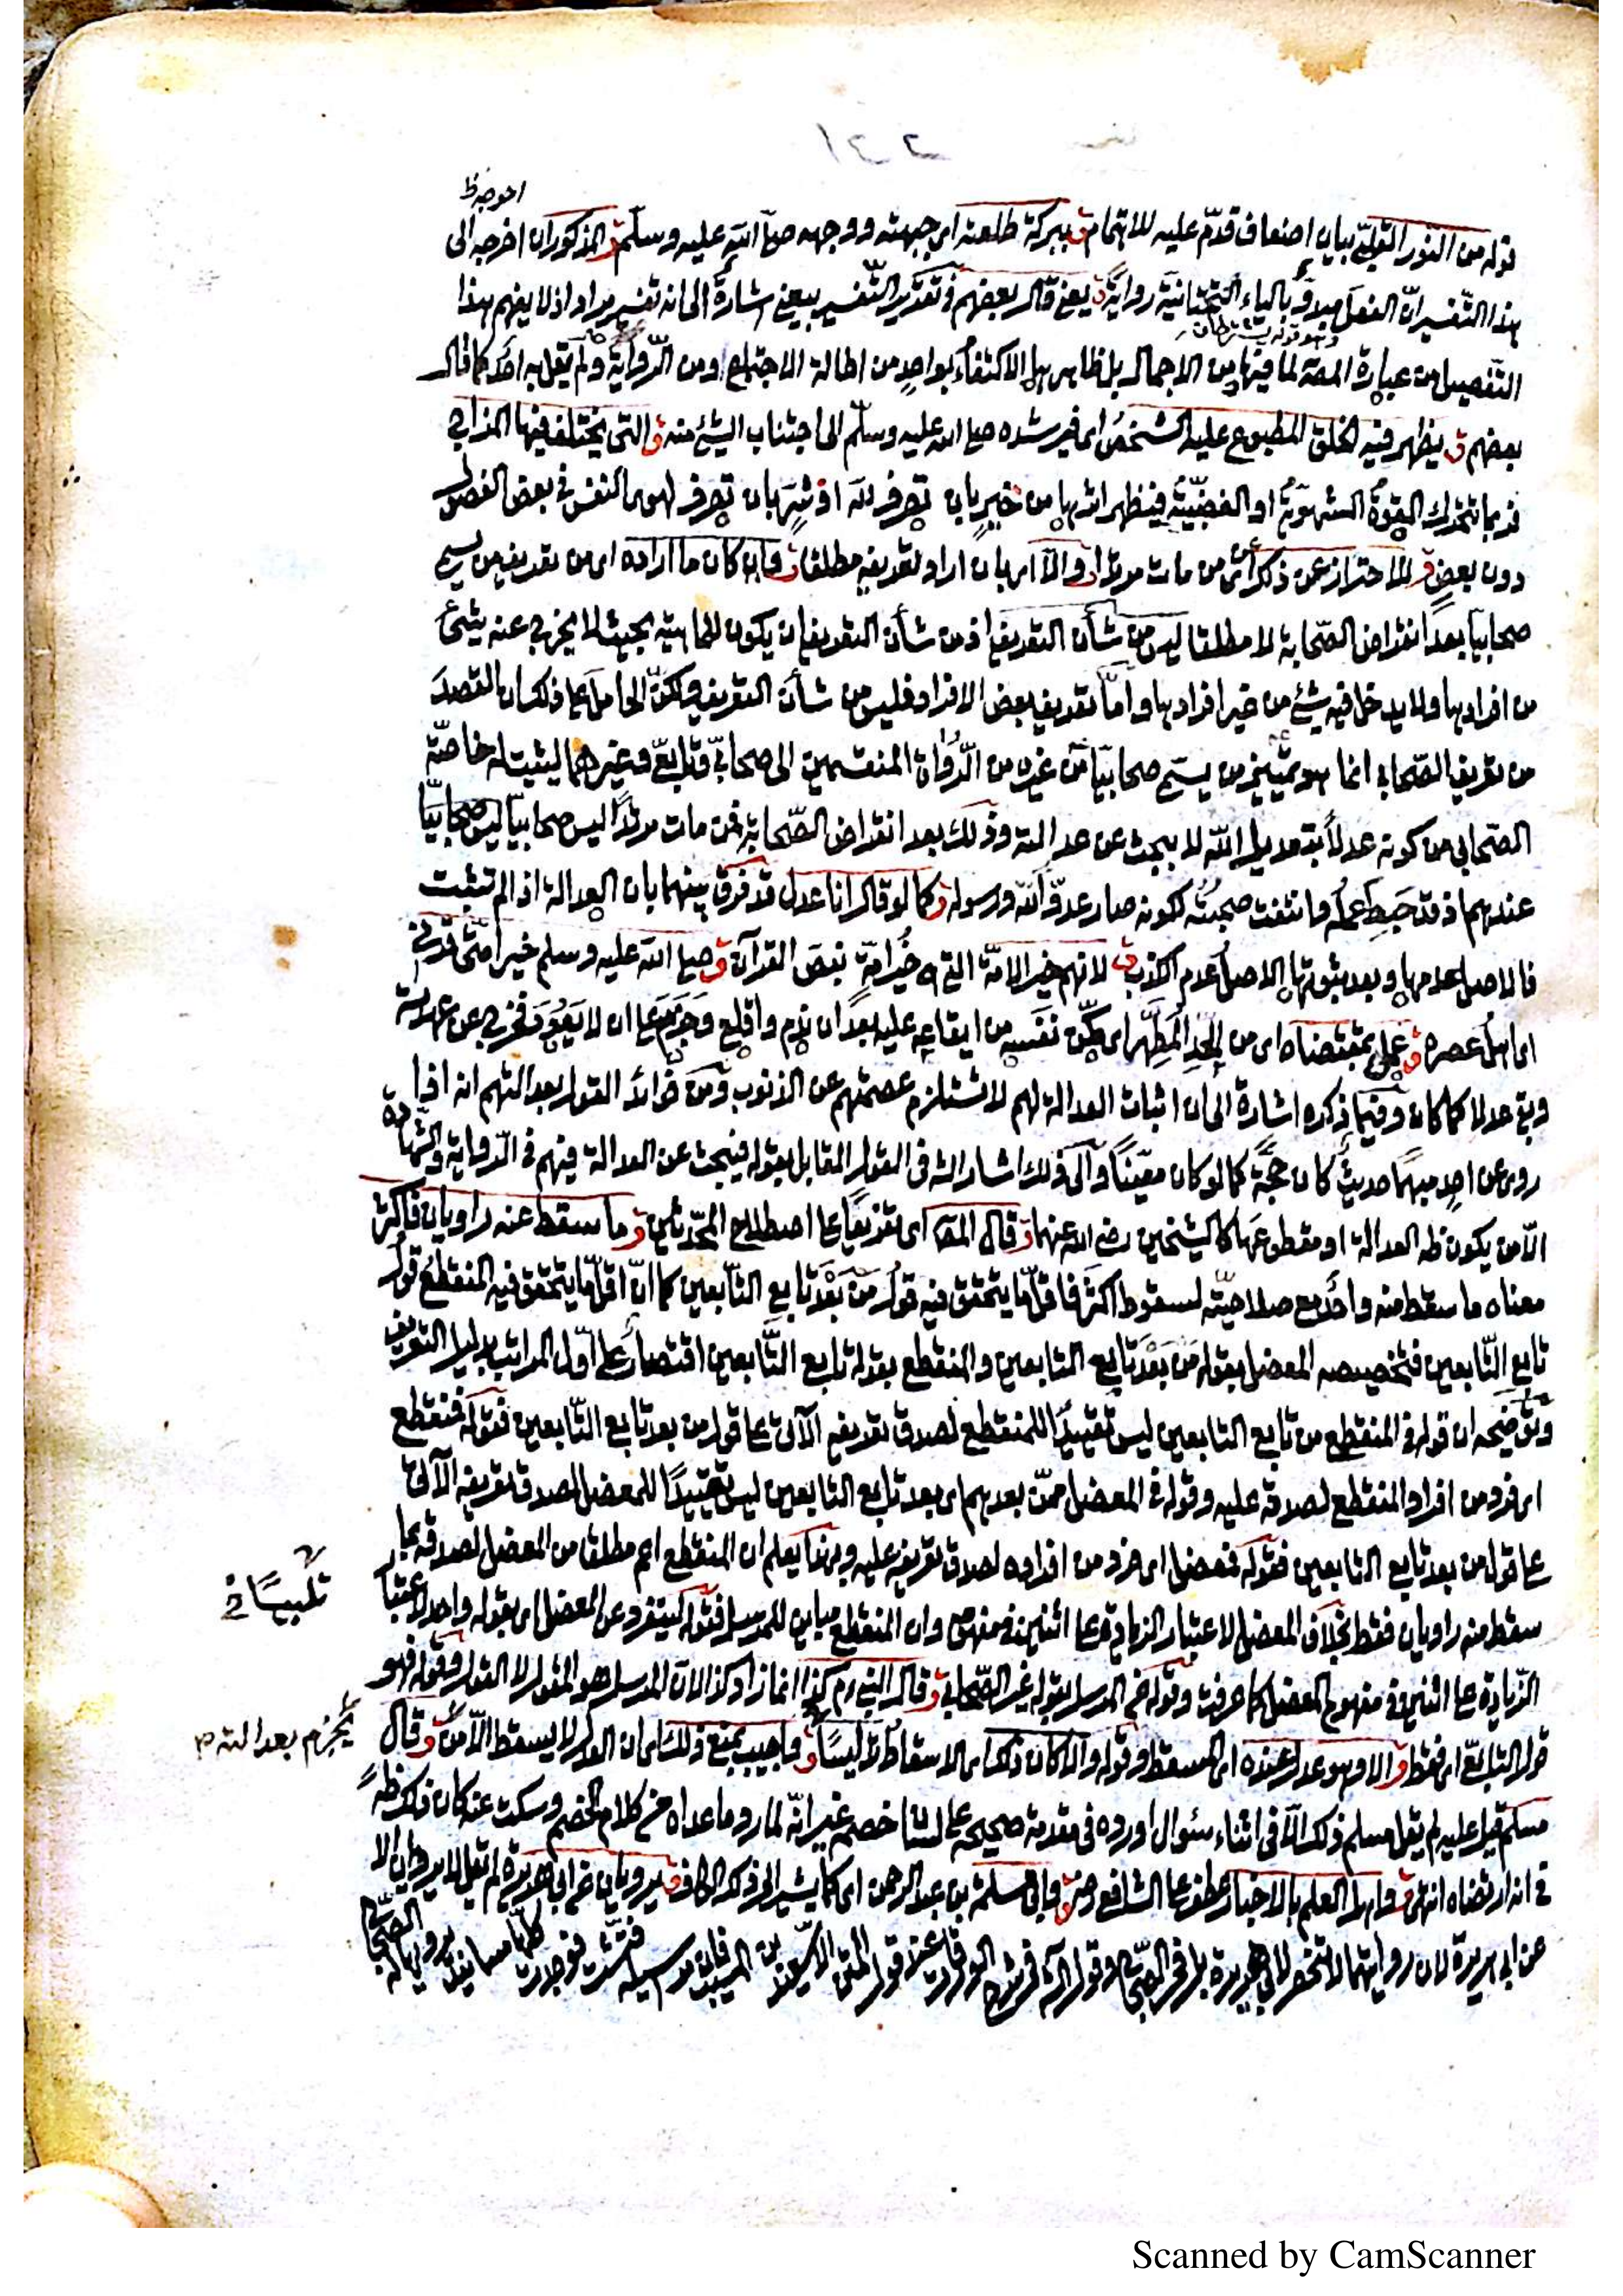 احوجه ظ
قوله من النور القلبي بيان اضعاف قدم عليه للاهتمام ق ببركة طلعته اى جبهته ووجهه صلى الله عليه وسلم ق المذكوران اخرجه الى
هذا التفسير ان الفعل مبدوّ بالياء التحتانية رواية ق يعنى قال بعضهم فى تقدير التفسير بيعنى اشارة الى انه تفسير مراد اذ لا يفهم هذا
التفصيل من عبارة المصـ لما فيها من الاجمال بل ظاهرها الاكتفاء بواحد من اطالة الاجتماع ومن الرواية ولم يقل به احد كما قال
بعضهم ق يظهر فيه الخلق المطبوع عليه الشخص اى فيرشده صلى الله عليه وسلم الى اجتناب الشئ منه ق والتى يختلف فيها المزاج
فربما تتحرك القوة الشهوية او الغضبية فيظهر اثرها من خير بان تصرف لله او شر بان تصرف لهوى النفس فى بعض الفصول
دون بعض ق للاحتراز عن ذكر اى عن من مات مرتدا ق والا اى بان اراد تعريفه مطلقا ق وان كان ما اراده اى من تعريف من يسمى
صحابيا بعد انقراض الصحابة لا مطلقا ليس من شأن التعريف اذ من شأن التعريف ان يكون للماهية بحيث لا يخرج عنه شئ
من افرادها ولا يدخل فيه شئ من غير افرادها واما تعريف بعض الافراد فليس من شأن التعريف ولكن الحامل على ذلك ان القصد
من تعريف الصحابى انما هو تمييز من يسمى صحابيا من غيره من الرواة المنقسمين الى صحابى وتابعى وغيرهما ليثبت له خاصة
الصحابى من كونه عدلا بتعديل الله لا يبحث عن عدالته وذلك بعد انقراض الصحابة فمن مات مرتدا ليس صحابيا ليس صحابيا
عندهم اذ قد حبط عمله وانتفت صحبته لكونه صار عدو الله ورسوله ق كما لو قال انا عدل قد فرق بينهما بان العدالة اذا لم تثبت
فالاصل عدمها وبعد ثبوتها الاصل عدم الكذب ق لانهم خير الامة التى هى خير امة بنص القرآن ق صلى الله عليه وسلم خير امتى قرنى
اى اهل عصره ق عمل بمقتضاه اى من الحد المطهر اى مكن نفسه من ايقاعه عليه بعد ان ندم واقلع وجزم على ان لا يعود فخرج عن عهدته
وبقى عدلا كما كان وفيما ذكره اشارة الى ان اثبات العدالة لهم لا يستلزم عصمتهم عن الذنوب ومن فوائد القول بعدالتهم انه اذا
روى عن احدهم مبهما حديث كان حجة كما لو كان معينا والى ذلك اشار الشـ فى القول المقابل بقوله فيبحث عن العدالة فيهم فى الرواية والشهادة
الا من يكون ظه العدالة او مقطوعها كالشيخين رضى الله عنهما ق قال المصـ اى تفريعا على اصطلاح المحدثين ق ما سقط عنه راويان فاكثر
معناه ما سقط منه واحد مع صلاحيته لسقوط اكثر فاقل ما يتحقق فيه قول من بعد تابع التابعين كما ان اقل ما يتحقق فيه المنقطع قول
تابع التابعين فتخصيصه المعضل بقوله من بعد تابع التابعين والمنقطع بقوله تابع التابعين اقتصار على اول المراتب بدليل التعريف
وتوضيحه ان قوله فى المنقطع من تابع التابعين ليس تقييدا للمنقطع لصدق تعريفه الآتى على قول من بعد تابع التابعين فقوله فمنقطع
اى فرد من افراد المنقطع لصدقه عليه وقوله فى المعضل ممن بعدهم اى بعد تابع التابعين ليس تقييدا للمعضل لصدق تعريفه الآتى
على قول من بعد تابع التابعين فقوله فمعضل اى فرد من افراده لصدق تعريفه عليه وبهذا يعلم ان المنقطع اعم مطلقا من المعضل لصدقه بما
سقط منه راويان فقط بخلاف المعضل لاعتبار الزيادة على اثنين فى مفهومه وان المنقطع مباين للمرسل فقوله ليتفرد عن المعضل اى بقوله واحد لاعتبار
الزيادة على اثنين فى مفهوم المعضل كما عرفت وقوله عن المرسل بقوله غير الصحابى ق قال النبى م كذا انما زاد كذا لان المرسل هو المقول لا القول وقوله فهو
قول التابعى اى فقط ق الا وهو عدل عنده اى المسقط وقوله والا كان ذلك اى الاسقاط تلبيسا ق واجيب بمنع ذلك اى ان العدل لا يسقط الا من ق وقال
مسلم قيل عليه لم يقل مسلم ذلك الا فى اثناء سؤال اورده فى مقدمة صحيحه على لسان خصم غير انه لما رد ما عداه من كلام الخصم وسكت عنه كان ذلك ظه
فى انه ارتضاه انتهى ق واهل العلم بالاخبار عطف على الشافعى ق وابى سلمة بن عبد الرحمن اى كما يشير الى ذكره الكاف ق يرويان عن ابى هريرة لم يقل لا يرويان الا
عن ابى هريرة لان روايتهما لا تنحصر لابى هريرة
تلبيسا
يجزم بعدالته م
Scanned by CamScanner